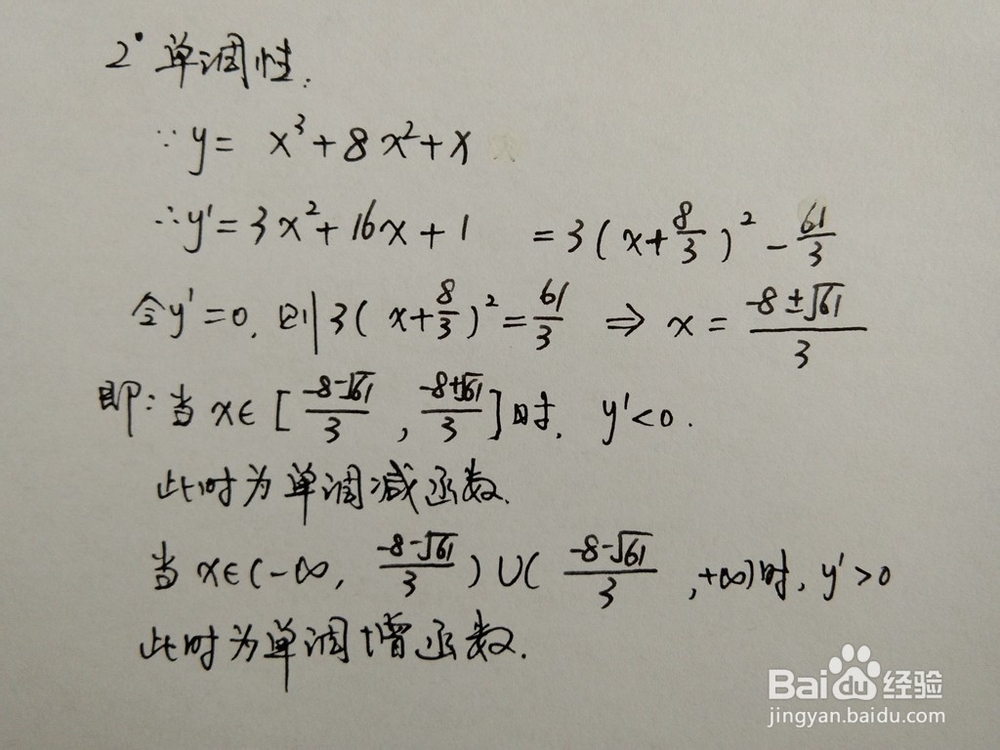 2° 单调性:
∵ y = x³ + 8x² + x
∴ y' = 3x² + 16x + 1 = 3(x + 8/3)² - 61/3
令y' = 0, 则 3(x + 8/3)² = 61/3 ⇒ x = (-8±√61)/3
即: 当 x∈[(-8-√61)/3, (-8+√61)/3]时, y'<0.
此时为单调减函数.
当 x∈(-∞, (-8-√61)/3)∪((-8-√61)/3, +∞)时, y'>0
此时为单调增函数.
Baidu经验
jingyan.baidu.com